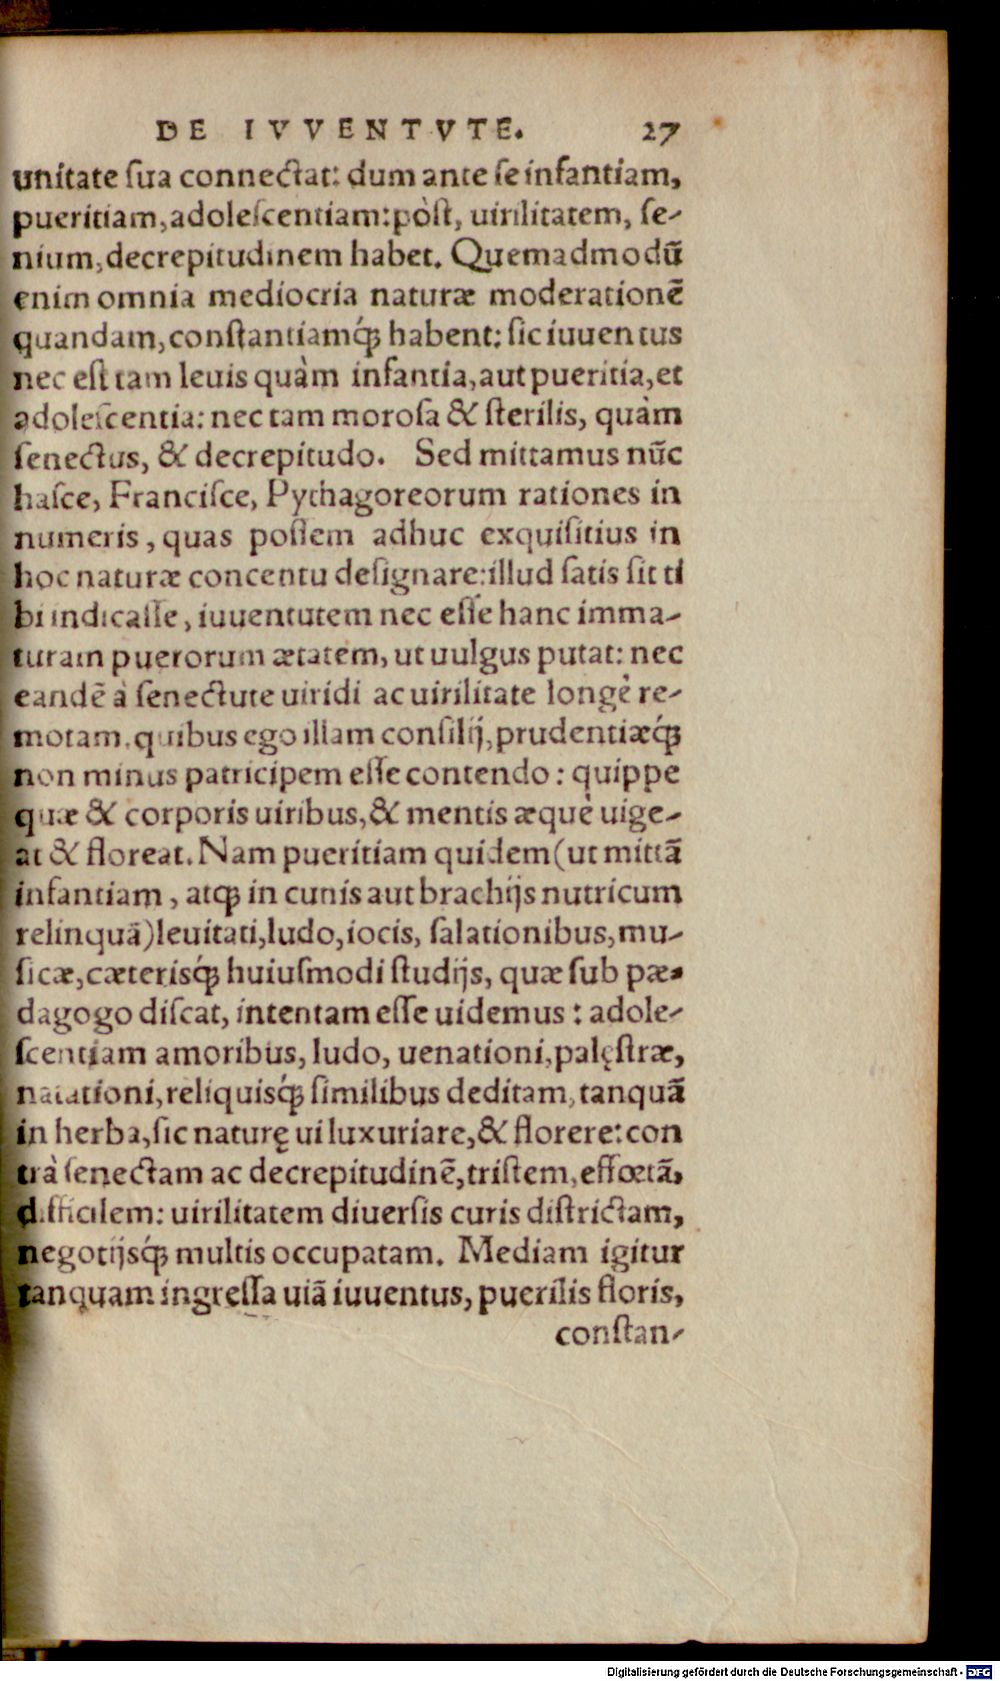 DE IVVENTVTE. 27
unitate ſua connectat: dum ante ſe infantiam,
pueritiam, adoleſcentiam: pòſt, uirilitatem, ſe-
nium, decrepitudinem habet. Quemadmodũ
enim omnia mediocria naturæ moderationẽ
quandam, conſtantiamq́ꝫ habent: ſic iuuentus
nec eſt tam leuis quàm infantia, aut pueritia, et
adoleſcentia: nec tam moroſa & ſterilis, quàm
ſenectus, & decrepitudo. Sed mittamus nũc
haſce, Franciſce, Pythagoreorum rationes in
numeris, quas poſſem adhuc exquiſitius in
hoc naturæ concentu deſignare: illud ſatis ſit ti
bi indicaſſe, iuuentutem nec eſſe hanc imma-
turam puerorum ætatem, ut uulgus putat: nec
eandẽ à ſenectute uiridi ac uirilitate longè re-
motam, quibus ego illam conſilij, prudentiæq́ꝫ
non minus patricipem eſſe contendo: quippe
quæ & corporis uiribus, & mentis æquè uige-
at & floreat. Nam pueritiam quidem (ut mittã
infantiam, atqꝫ in cunis aut brachijs nutricum
relinquã) leuitati, ludo, iocis, ſalationibus, mu-
ſicæ, cæterisq́ꝫ huiuſmodi ſtudijs, quæ ſub pæ-
dagogo diſcat, intentam eſſe uidemus: adole-
ſcentiam amoribus, ludo, uenationi, palęſtræ,
natationi, reliquisq́ꝫ ſimilibus deditam, tanquã
in herba, ſic naturę ui luxuriare, & florere: con
trà ſenectam ac decrepitudinẽ, triſtem, effœtã,
difficilem: uirilitatem diuerſis curis diſtrictam,
negotijsq́ꝫ multis occupatam. Mediam igitur
tanquam ingreſſa uiã iuuentus, puerilis floris,
conſtan-
Digitalisierung gefördert durch die Deutsche Forschungsgemeinschaft - DFG